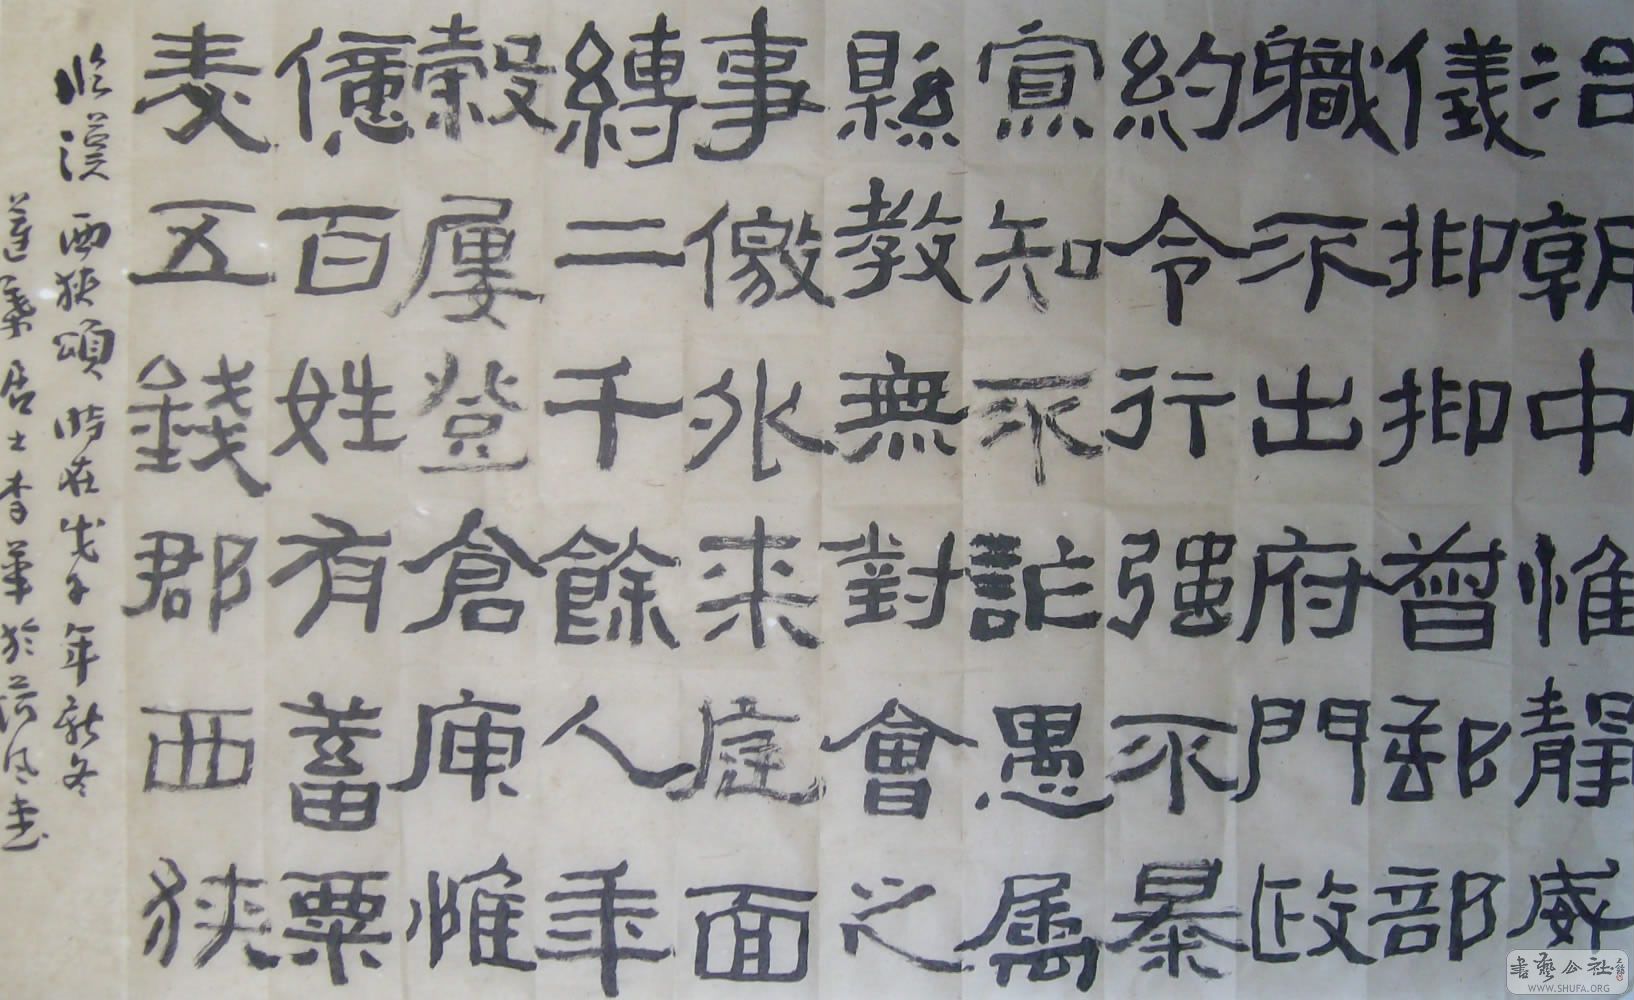 治朝中惟靜威
儀抑抑督郵部
職不出府門政
約令行强不暴
寡知不詐愚属
縣教無對會之
事徼外来庭面
縛二千餘人年
穀屢登倉庾惟
億百姓有蓄粟
麦五錢郡西狹
临漢西狹頌時在戊子年新冬
蓮葉居士李華於荷风
書藝公社
WWW.SHUFA.ORG